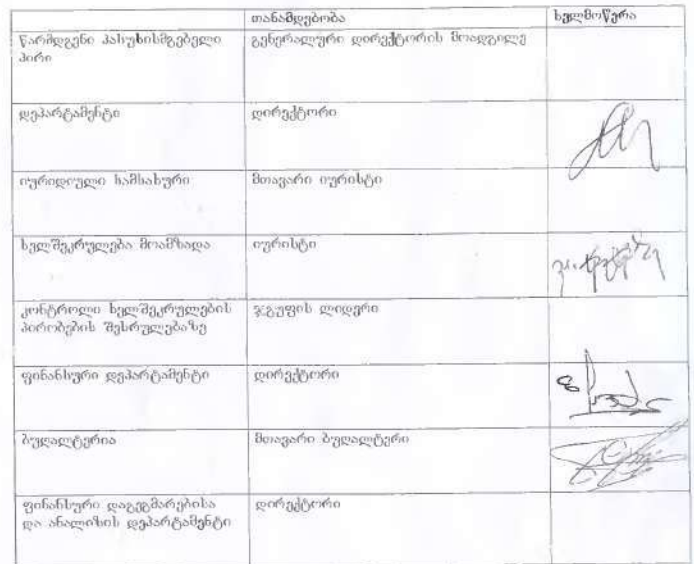 თანამდებობა ხელმოწერა
წარმდგენი პასუხისმგებელი გენერალური დირექტორის მოადგილე
პირი
დეპარტამენტი დირექტორი
იურიდიული სამსახური მთავარი იურისტი
ხელშეკრულება მოამზადა იურისტი
კონტროლი ხელშეკრულების ჯგუფის ლიდერი
პირობების შესრულებაზე
ფინანსური დეპარტამენტი დირექტორი
ბუღალტერია მთავარი ბუღალტერი
ფინანსური დაგეგმარებისა დირექტორი
და ანალიზის დეპარტამენტი